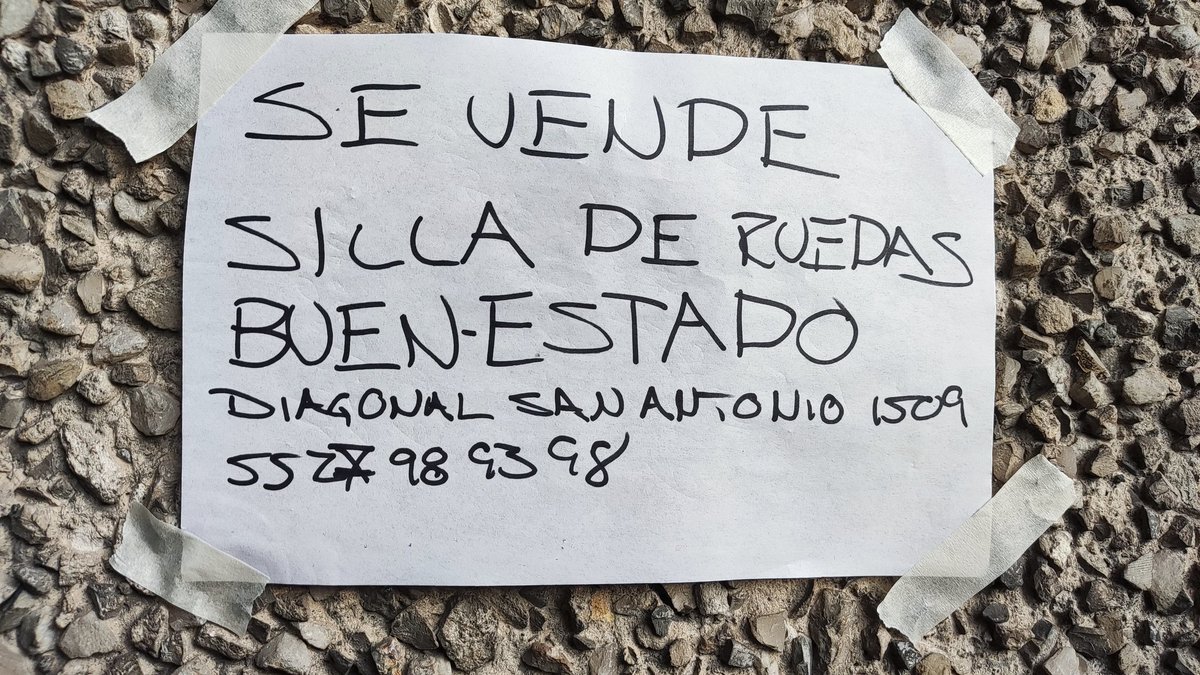 SE VENDE
SILLA DE RUEDAS
BUEN-ESTADO
DIAGONAL SAN ANTONIO 1509
55 98 93 98